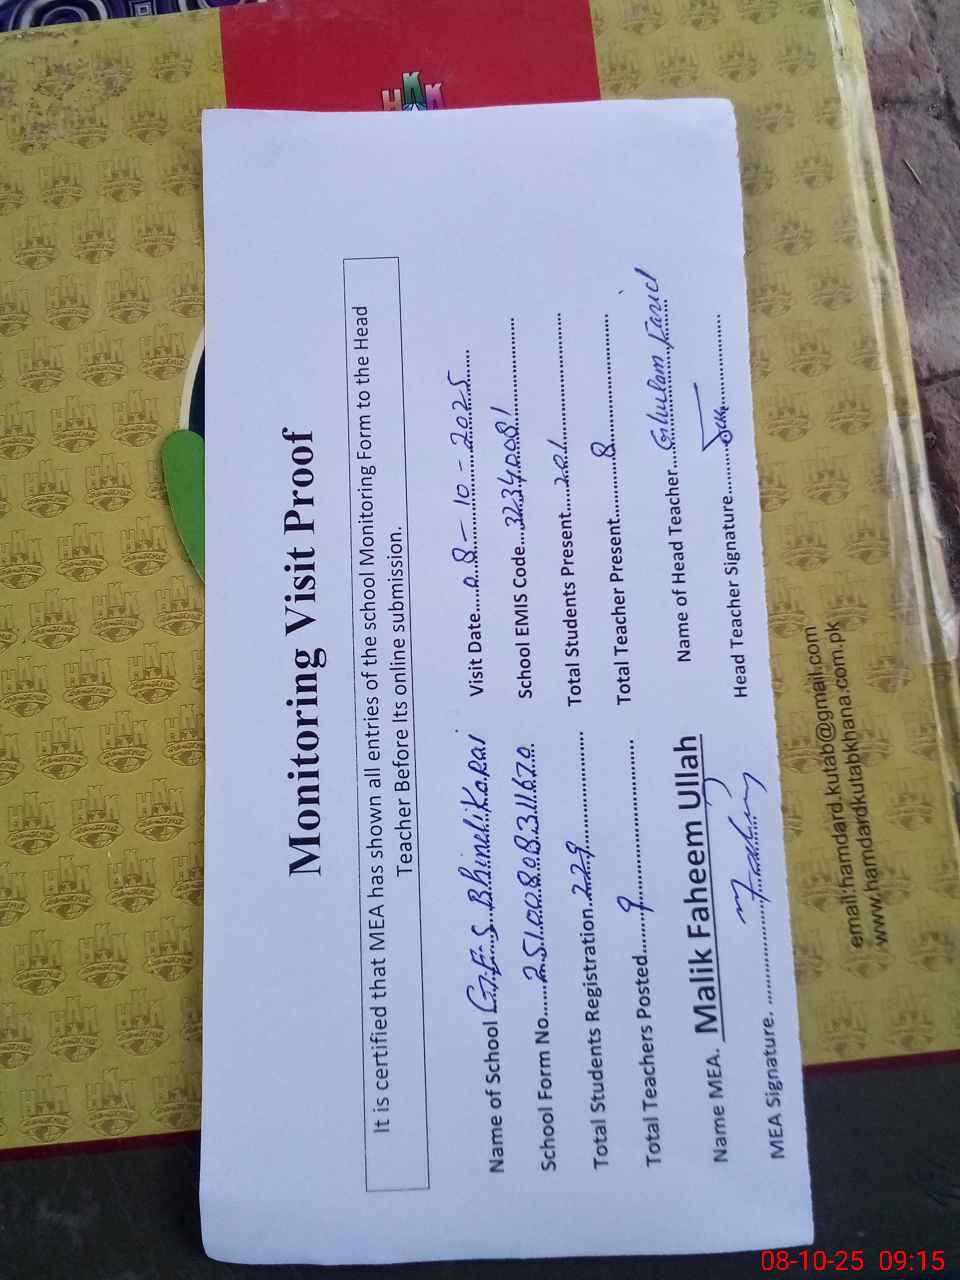 Monitoring Visit Proof
It is certified that MEA has shown all entries of the school Monitoring Form to the Head
Teacher Before Its online submission.
Name of School G.E.S Bhindi Korai Visit Date.....08-10-2025.....
School Form No......25100808311670 School EMIS Code....32340081
Total Students Registration.229 Total Students Present.....201
Total Teachers Posted.....9 Total Teacher Present........8
Name MEA. Malik Faheem Ullah Name of Head Teacher....Ghulam Farid
MEA Signature. Head Teacher Signature
email:hamdard.kutab@gmail.com
www.hamdardkutabkhana.com.pk
HKK
08-10-25 09:15